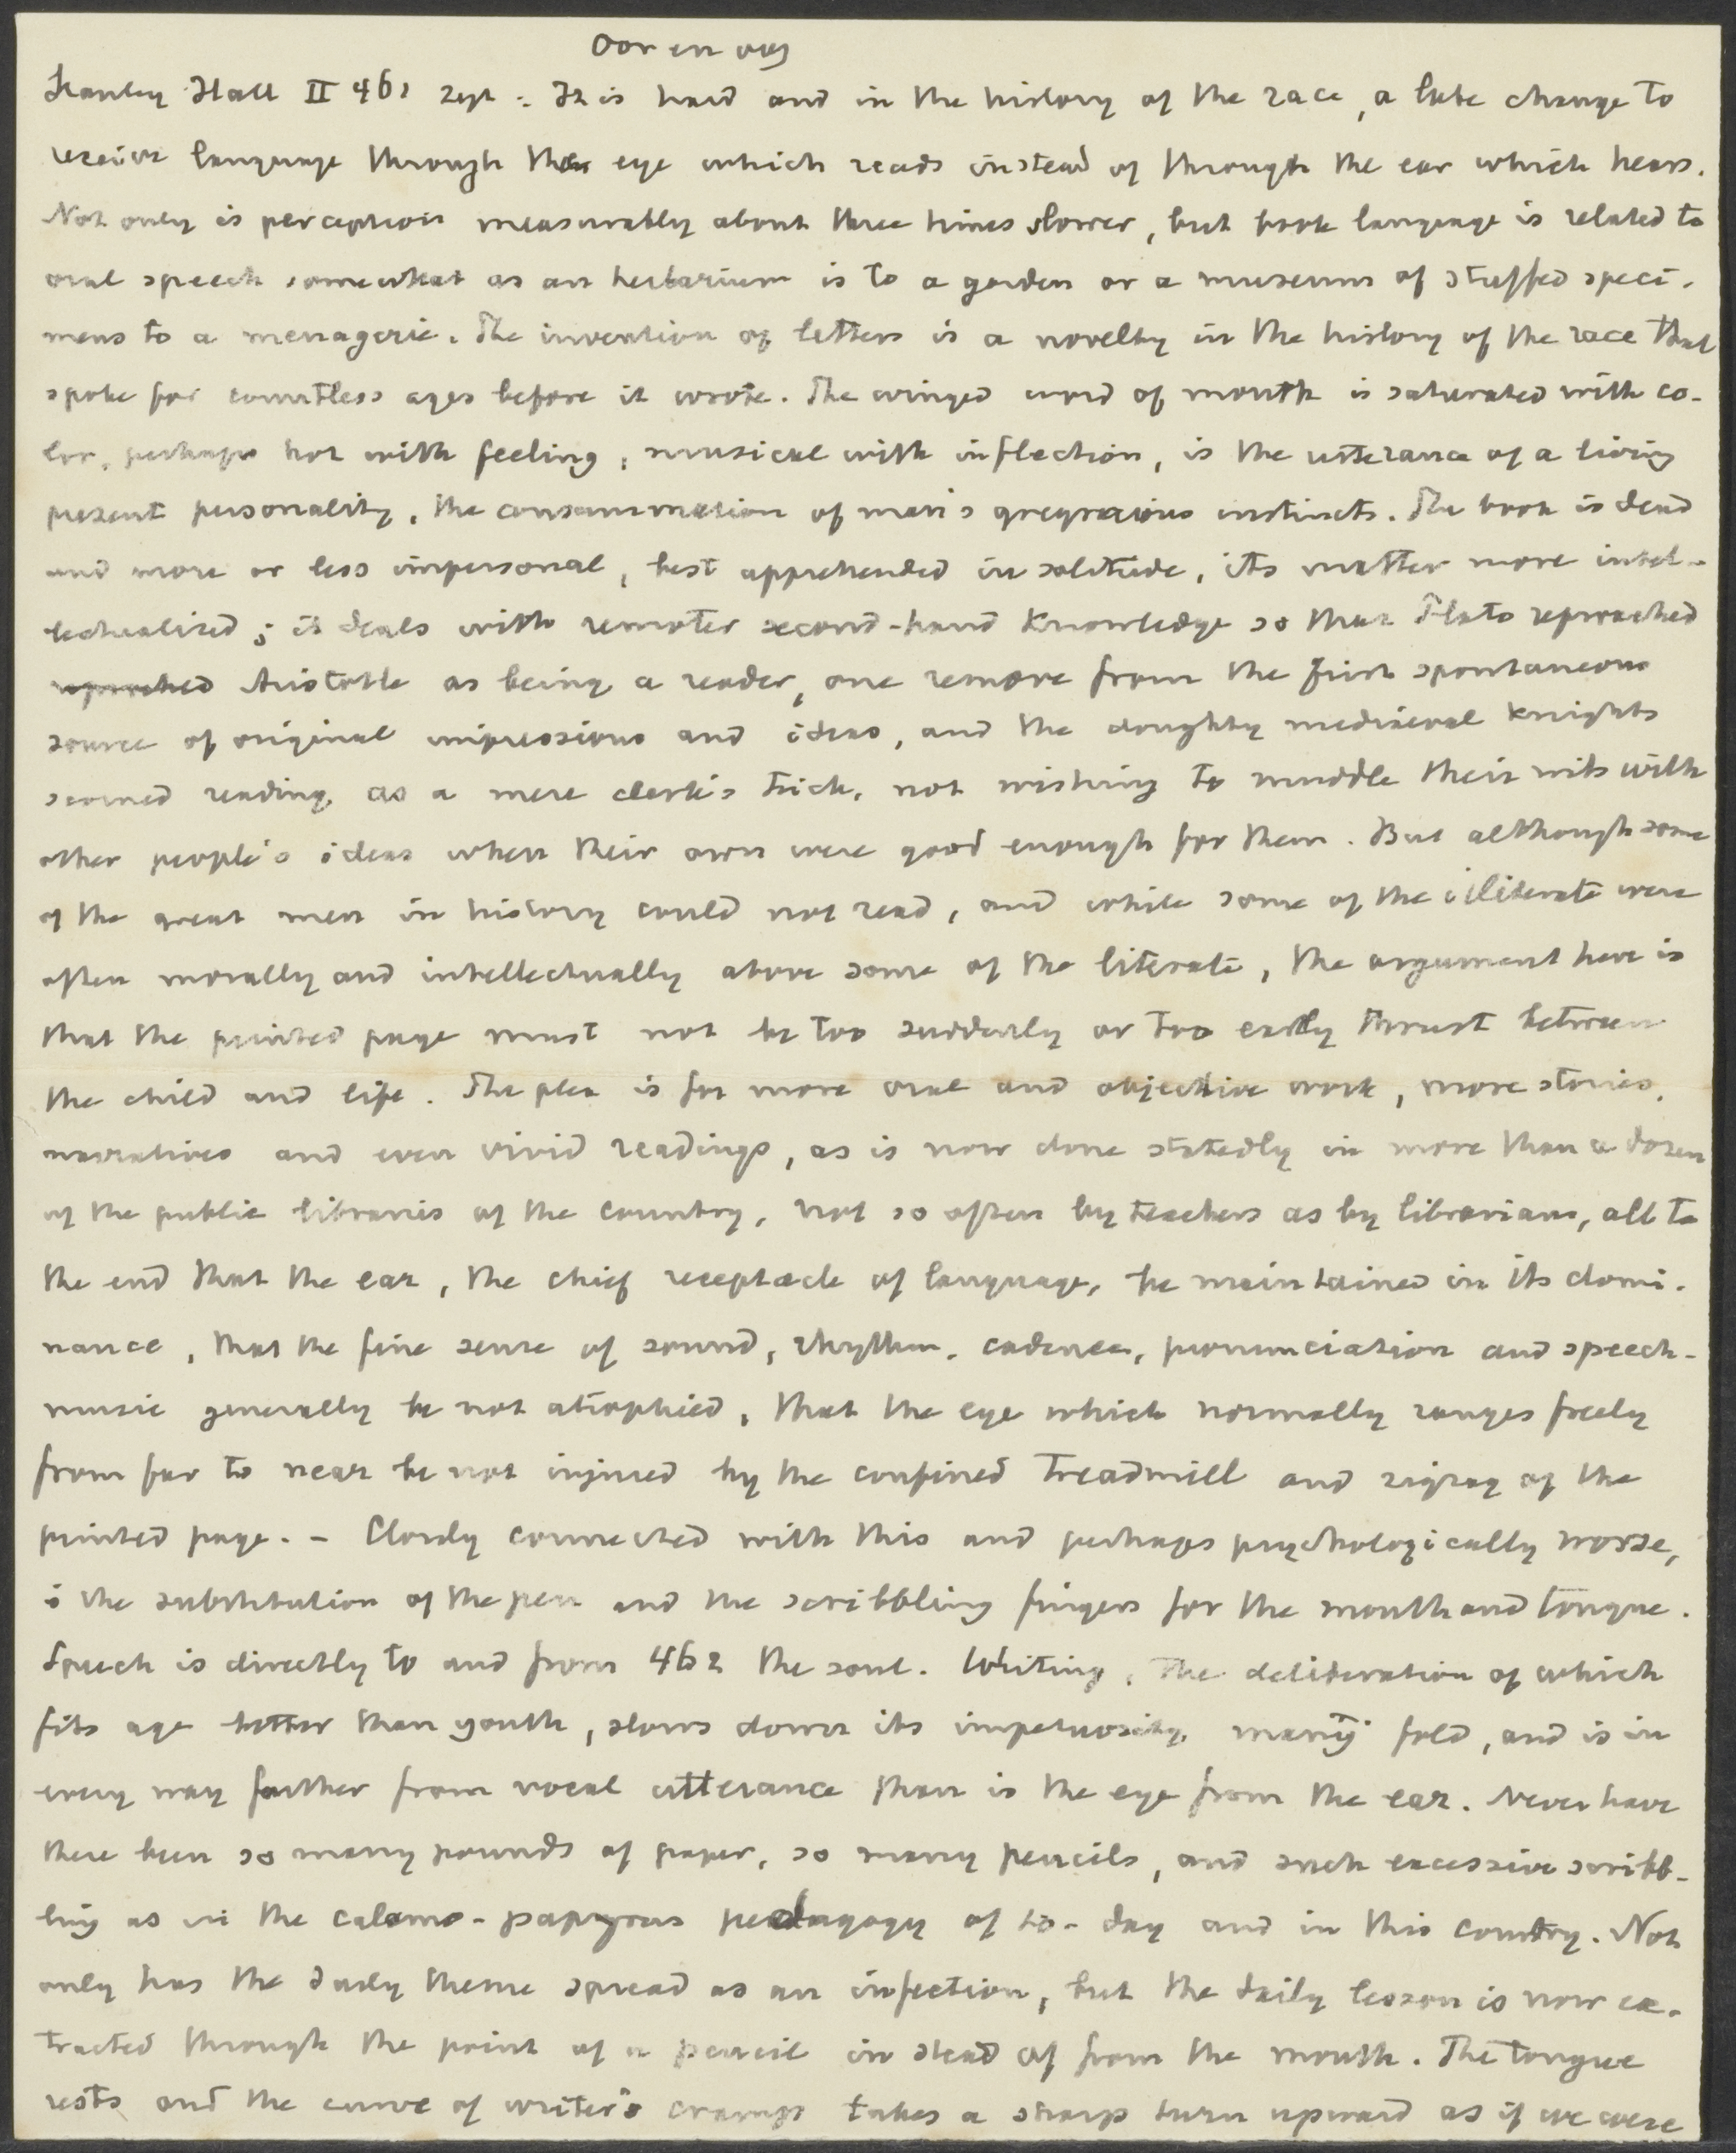 Oor en oog
Stanley Hall II 461 sqq : It is hard and in the history of the race, a late change to
receive language through the eye which reads instead of through the ear which hears.
Not only is perception measurably about three times slower, but book language is related to
oral speech somewhat as an herbarium is to a garden or a museum of stuffed speci-
mens to a menagerie. The invention of letters is a novelty in the history of the race that
spoke for countless ages before it wrote. The winged word of mouth is saturated with co-
lor, perhaps hot with feeling, musical with inflection, is the utterance of a living
present personality, the consummation of man's gregarious instincts. The book is dead
and more or less impersonal, best apprehended in solitude, its matter more intel-
lectualized; it deals with remoter second-hand knowledge so that Plato reproached
reproached Aristotle as being a reader, one remove from the first spontaneous
source of original impressions and ideas, and the doughty mediaeval knights
scorned reading as a mere clerk's trick, not wishing to muddle their wits with
other people's ideas when their own were good enough for them. But although some
of the great men in history could not read, and while some of the illiterate were
often morally and intellectually above some of the literate, the argument here is
that the printed page must not be too suddenly or too early thrust between
the child and life. The plea is for more oral and objective work, more stories,
narratives and even vivid readings, as is now done statedly in more than a dozen
of the public libraries of the country, not so often by teachers as by librarians, all to
the end that the ear, the chief receptacle of language, be maintained in its domi-
nance, that the fine sense of sound, rhythm, cadence, pronunciation and speech-
music generally be not atrophied, that the eye which normally ranges freely
from far to near be not injured by the confined treadmill and zigzag of the
printed page. - Closely connected with this and perhaps psychologically worse,
is the substitution of the pen and the scribbling fingers for the mouth and tongue.
Speech is directly to and from 462 the soul. Writing, the deliberation of which
fits age better than youth, slows down its impetuosity many fold, and is in
every way farther from vocal utterance than is the eye from the ear. Never have
there been so many pounds of paper, so many pencils, and such excessive scribb-
ling as in the calamo-papyrus pedagogy of to-day and in this country. Not
only has the daily theme spread as an infection, but the daily lesson is now ex-
tracted through the point of a pencil in stead of from the mouth. The tongue
rests and the curve of writer's cramp takes a sharp turn upward as if we were